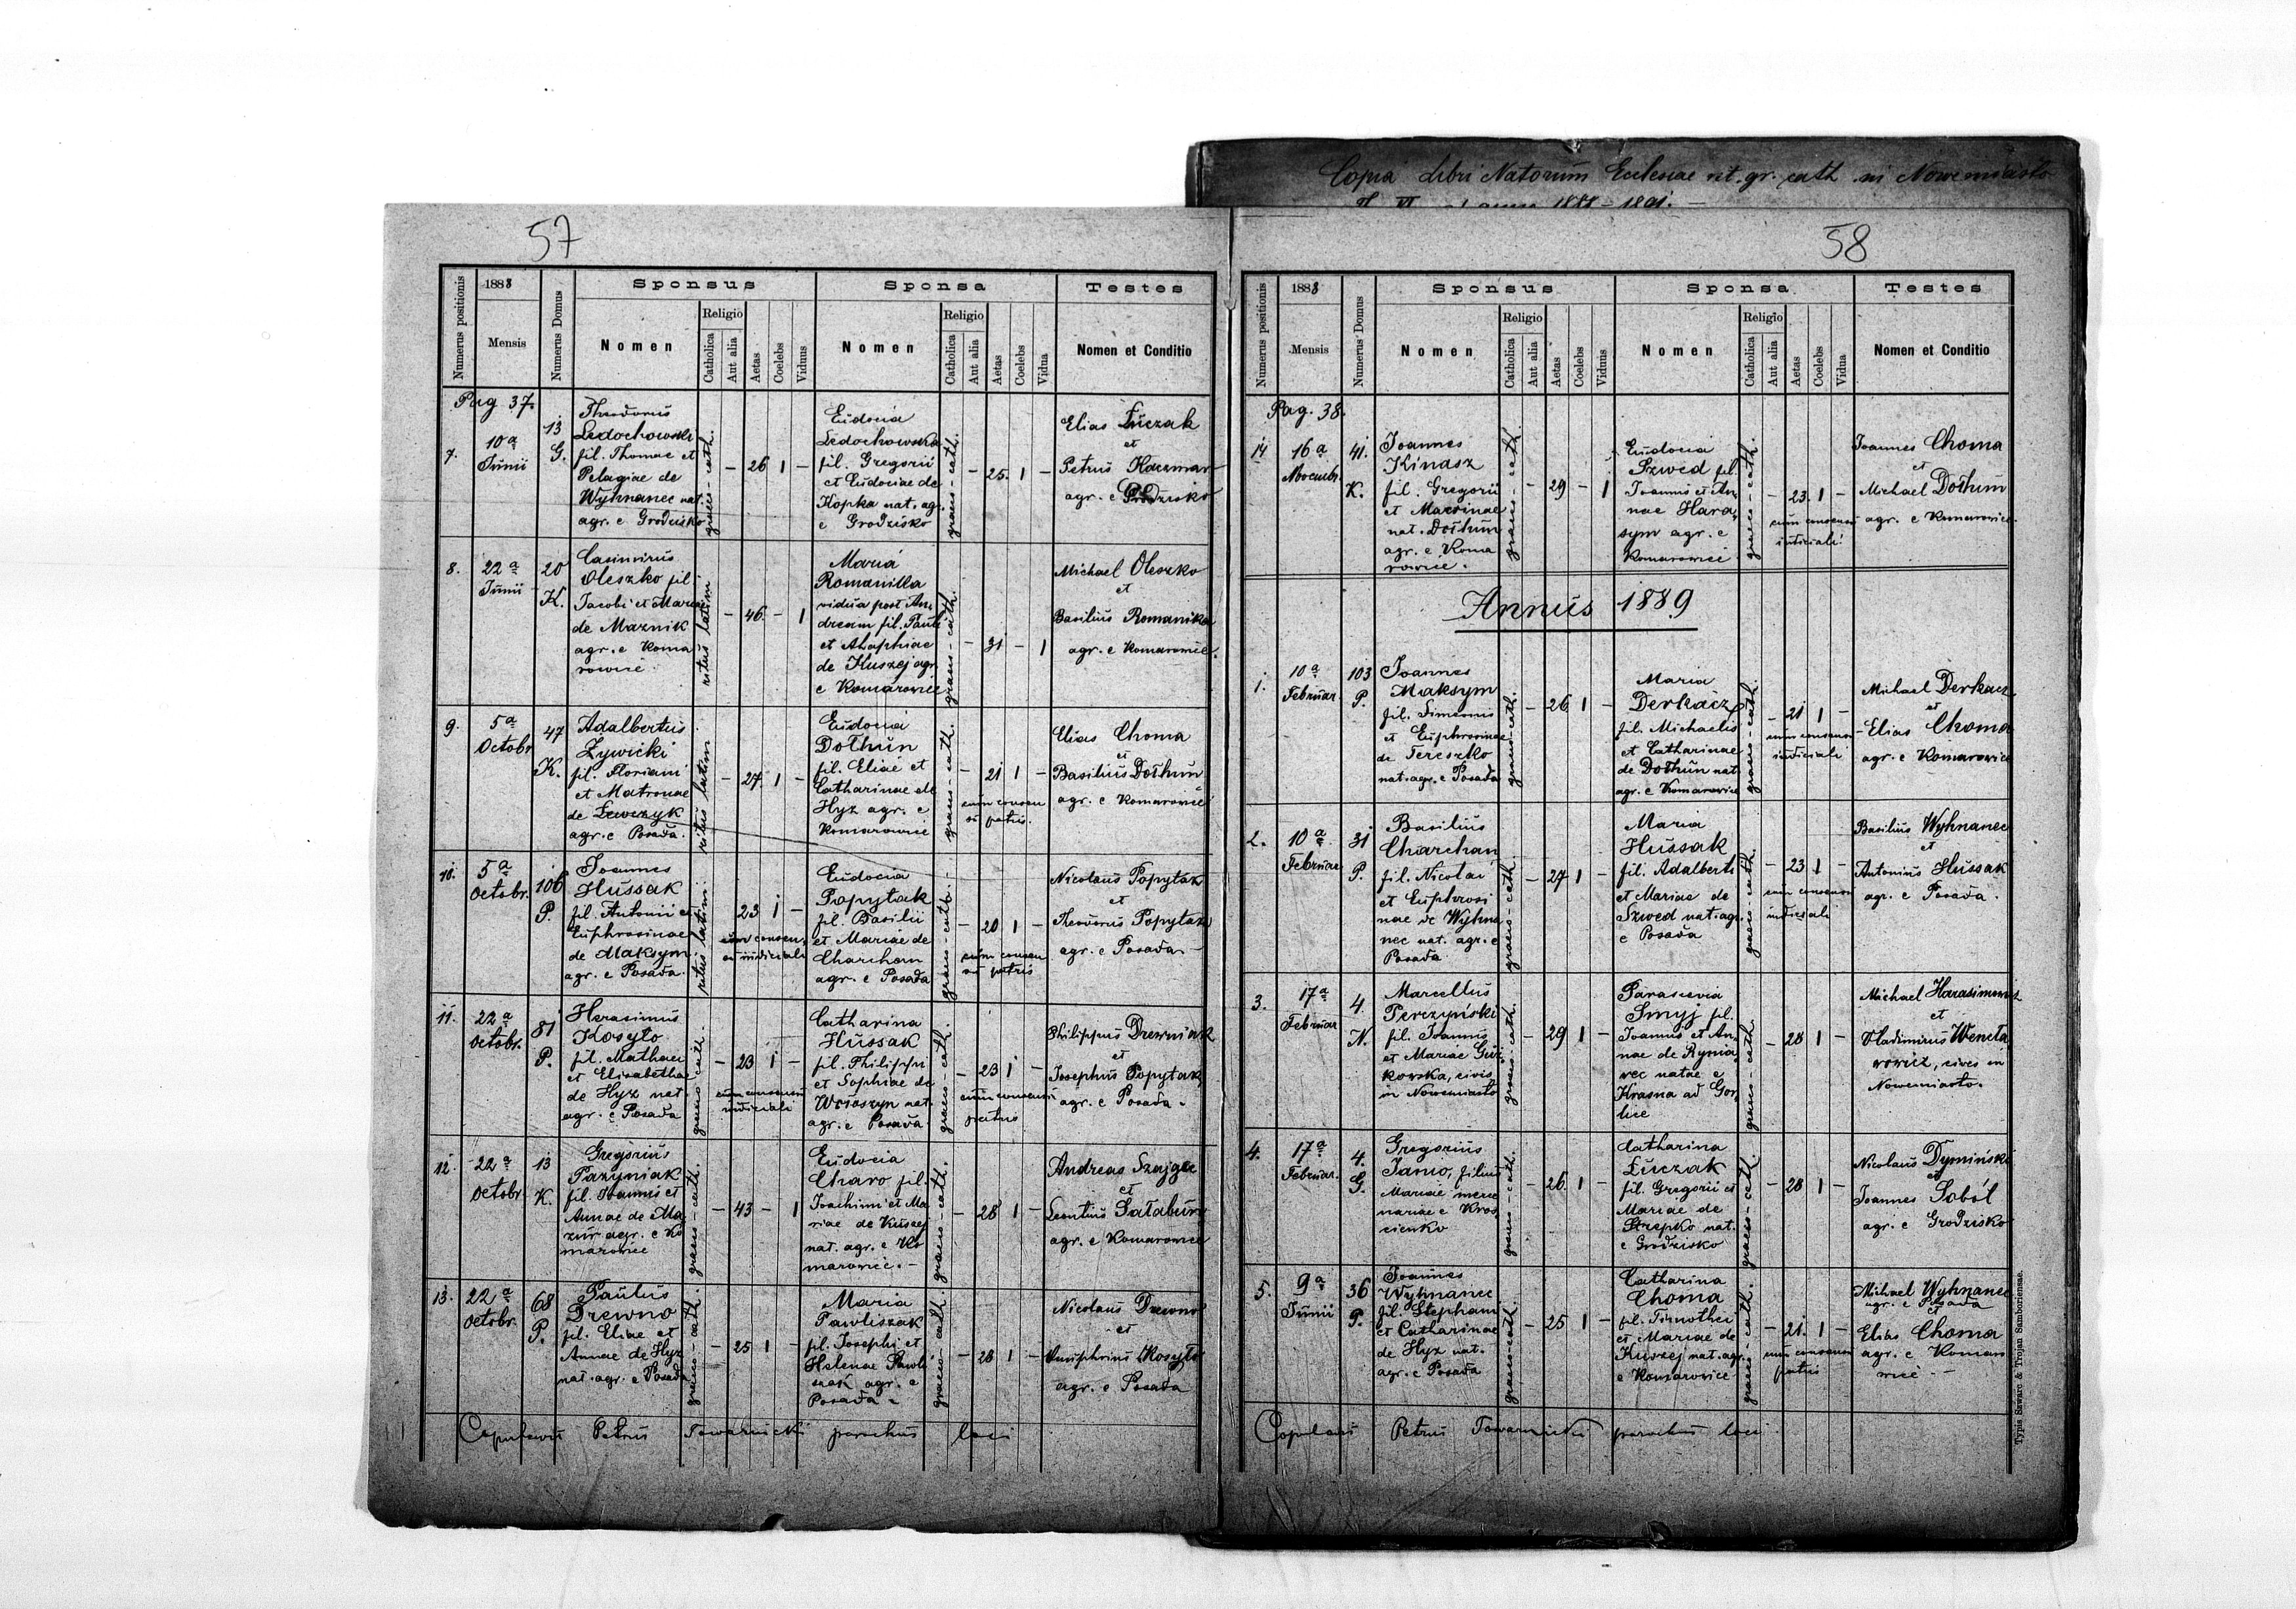 Copia Libri Natorum Ecclesiae rit. gr. cath. in Nowemiasto
1888 - 1891. -
57
Numerus positionis
1888
Mensis
Numerus Domus
Sponsus
Nomen
Religio
Catholica
Aut alia
Aetas
Coelebs
Viduus
Sponsa
Nomen
Religio
Catholica
Aut alia
Aetas
Coelebs
Vidua
Testes
Nomen et Conditio
Pag 37.
7.
10a
Junii
13
G.
Theodorus
Ledochowski
fil. Thomae et
Pelagiae de
Wyhnanec nat.
agr. e Grodzisko
graeco-cath.
- 26 1 -
Eudocia
Ledochowska
fil. Gregorii
et Eudociae de
Kopka nat. agr.
e Grodzisko
graeco-cath.
- 25. 1 -
Elias Łuczak
et
Petrus Kaczmar
agr. e Grodzisko
8.
22a
Junii
20
K.
Casimirus
Oleszko fil.
Jacobi et Mariae
de Maznik
agr. e Koma
rowice
ritus latini
- 46 - 1
Maria
Romanilla
vidua post An
dream fil. Pauli
et Ahaphiae
de Kuszej agr.
e Komarowice
graeco-cath.
- 31 - 1
Michael Oleszko
et
Basilius Romanika
agr. e Komarowice.
9.
5a
Octobr
47
K.
Adalbertus
Żywicki
fil. Floriani
et Matronae
de Lewczyk
agr. e Posada.
ritus latini
- 27. 1 -
Eudocia
Dołhun
fil. Eliae et
Catharinae de
Hyz agr. e
Komarowice
graeco-cath.
- 21 1 -
cum consen
su patris.
Elias Choma
et
Basilius Dołhun
agr. e Komarowice
10.
5a
Octobr.
106
P.
Joannes
Hussak
fil. Antonii et
Euphrosinae
de Maksym
agr. e Posada.
ritus latini
- 23 1 -
cum consen
su iudiciali
Eudocia
Popytak
fil. Basilii
et Mariae de
Charchan
agr. e Posada
graeco-cath.
- 20 1 -
cum consen
su patris
Nicolaus Popytak
et
Theodorus Popytak
agr. e Posada -
11.
22a
Octobr.
81
P.
Herasimus
Kosyło
fil. Mathaei
et Elisabethae
de Hyz nat.
agr. e Posada
graeco-cath.
- 23 1 -
cum consensu
iudiciali
Catharina
Hussak
fil. Philippi
et Sophiae de
Wołoszyn nat.
agr. e Posada
graeco-cath.
- 23 1 -
cum consensu
patris
Philippus Drewniak
et
Josephus Popytak
agr. e Posada -
12.
22a
Octobr
13
K.
Gregorius
Pazyniak
fil. Joannis et
Annae de Ma
zur agr. e Ko
marowice
graeco-cath.
- 43 - 1
Eudocia
Charo fil.
Joachimi et Ma
riae de Kuszej
nat. agr. e Ko
marowice. -
graeco-cath.
- 28 1 -
Andreas Szajgec
et
Leontius Sałabun
agr. e Komarowice
13.
22a
Octobr.
68
P.
Paulus
Drewno
fil. Eliae et
Annae de Hyz
nat. agr. e Posada
graeco-cath.
- 25 1 -
Maria
Pawliszak
fil. Josephi et
Helenae Pawli
szak agr. e
Posada -
graeco-cath.
- 28 1 -
Nicolaus Drewno
et
Onuphrius Kosyło
agr. e Posada
Copulavit Petrus Towarnicki parochus loci
58
Numerus positionis
1888
Mensis
Numerus Domus
Sponsus
Nomen
Religio
Catholica
Aut alia
Aetas
Coelebs
Viduus
Sponsa
Nomen
Religio
Catholica
Aut alia
Aetas
Coelebs
Vidua
Testes
Nomen et Conditio
Pag. 38.
14
16a
Novemb.
41.
K.
Joannes
Kinasz
fil. Gregorii
et Marinae
nat. Dołhun
agr. e Koma
rowice.
graeco-cath.
- 29 - 1
Eudocia
Szwed fil.
Joannis et An
nae Hara
sym agr. e
Komarowice
graeco-cath.
- 23. 1 -
cum consensu
iudiciali
Joannes Choma
et
Michael Dołhun
agr. e Komarowice.
Annus 1889
1.
10a
Februar.
103
P.
Joannes
Maksym
fil. Simeonis
et Euphrosinae
de Tereszko
nat. agr. e Posada
graeco-cath.
- 26 1 -
Maria
Derkacz
fil. Michaelis
et Catharinae
de Dołhun nat.
agr. e Komarowice
graeco-cath.
- 21 1 -
cum consensu
iudiciali
Michael Derkacz
et
Elias Choma
agr. e Komarowice
2.
10a
Februar.
31
P.
Basilius
Charchan
fil. Nicolai
et Euphrosi
nae de Wyhna
nec nat. agr. e
Posada
graeco-cath.
- 27 1 -
Maria
Hussak
fil. Adalberti
et Mariae de
Szwed nat. agr.
e Posada
graeco-cath.
- 23 1 -
cum consensu
iudiciali
Basilius Wyhnanec
et
Antonius Hussak
agr. e Posada.
3.
17a
Februar
4.
N.
Marcellus
Perczyński
fil. Joannis
et Mariae Gu
kowska, civis
in Nowemiasto
graeco-cath.
- 29 1 -
Parascevia
Smyj fil.
Joannis et An
nae de Ryma
wec natae e
Krasna ad Gor
lice
graeco-cath.
- 28 1 -
Michael Harasimowicz
et
Vladimirus Weneta
rowicz, cives in
Nowemiasto.
4.
17a
Februar.
4.
G.
Gregorius
Janio, filius
Mariae merce
nariae e Kros
cienko
graeco-cath.
- 26. 1 -
Catharina
Łuczak
fil. Gregorii et
Mariae de
Strepko nat.
e Grodzisko
graeco-cath.
- 28 1 -
Nicolaus Dymiński
et
Joannes Soból
agr. e Grodzisko
5.
9a
Junii
36
P.
Joannes
Wyhnanec
fil. Stephani
et Catharinae
de Hyz nat.
agr. e Posada
graeco-cath.
- 25 1 -
Catharina
Choma
fil. Timothei
et Mariae de
Kuszej nat. agr.
e Komarowice
graeco-cath.
- 21. 1 -
cum consensu
patris
Michael Wyhnanec
agr. e Posada
et
Elias Choma
agr. e Komaro
wice -
Copulavit Petrus Towarnicki parochus loci
Typis Szwarc & Trojan Samboriensae.